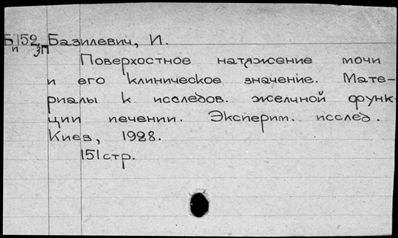 Б152 Базилевич, И.
и ЗП
Поверхностное натяжение мочи
и его клиническое значение. Мате-
риалы к исследов. желчной функ-
ции печении. Эксперим. исслед.
Киев, 1928.
151стр.